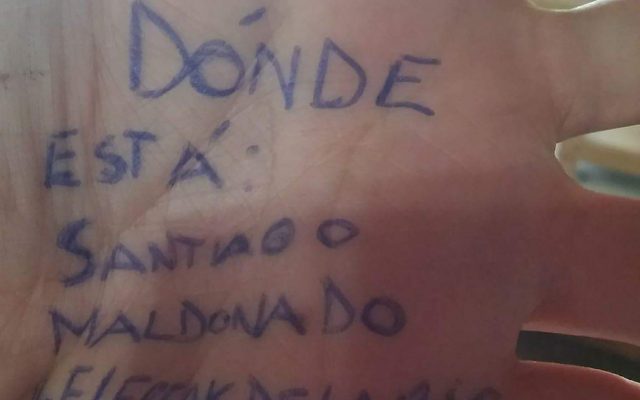 DÓNDE
ESTÁ:
SANTIAGO
MALDONADO